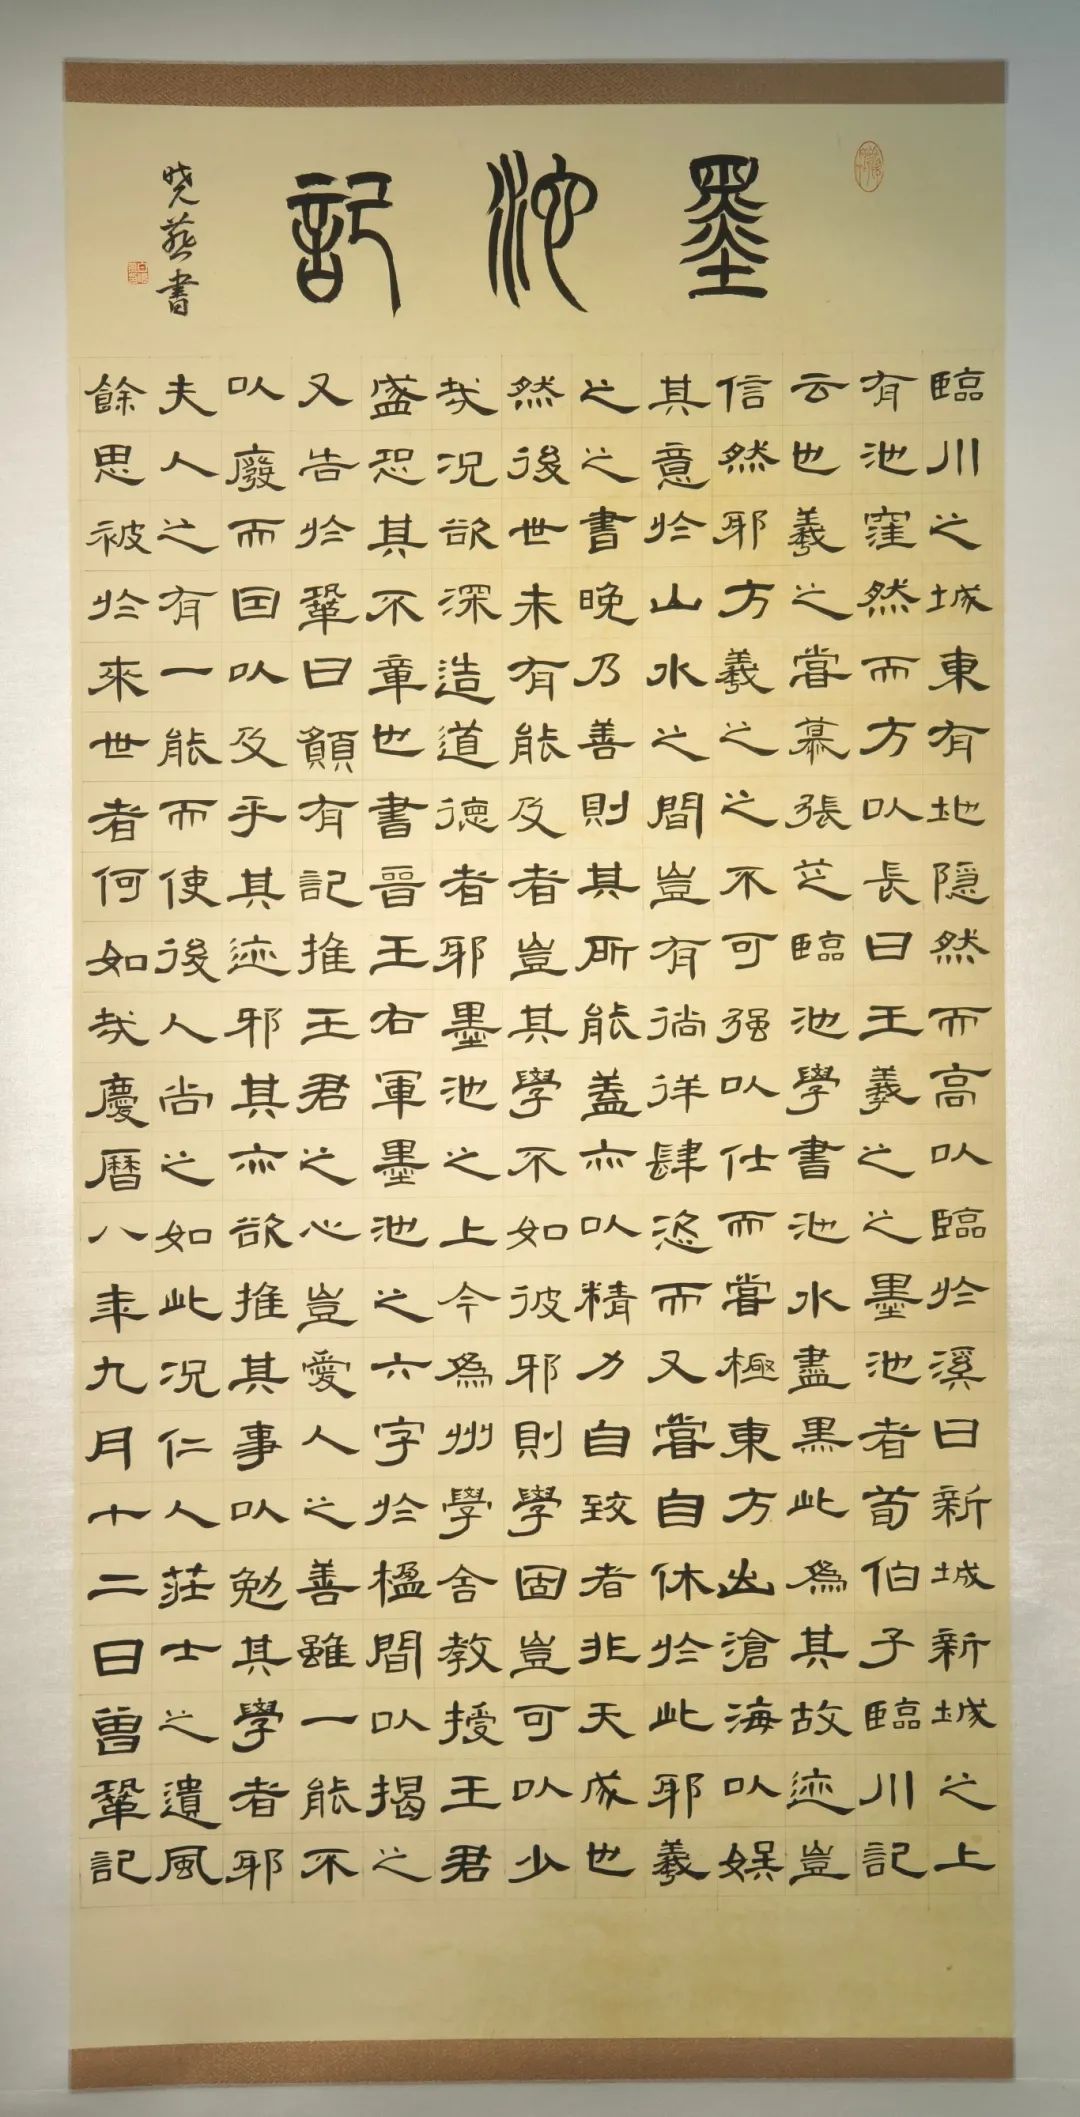 墨池記
臨川之城東有地隐然而高以臨於溪曰新城新城之上
有池窪然而方以長曰王羲之之墨池者荀伯子臨川記
云也羲之嘗慕張芝臨池學書池水盡黑此為其故迹豈
信然邪方羲之之不可强以仕而嘗極東方出滄海以娱
其意於山水之間豈有徜徉肆恣而又嘗自休於此邪羲
之之書晚乃善則其所能蓋亦以精力自致者非天成也
然後世未有能及者豈其學不如彼邪則學固豈可以少
哉况欲深造道德者邪墨池之上今為州學舍教授王君
盛恐其不章也書晉王右軍墨池之六字於楹間以揭之
又告於鞏曰願有記推王君之心豈愛人之善雖一能不
以廢而因以及乎其迹邪其亦欲推其事以勉其學者邪
夫人之有一能而使後人尚之如此况仁人莊士之遺風
餘思被於來世者何如哉慶曆八年九月十二日曾鞏記
晓燕書